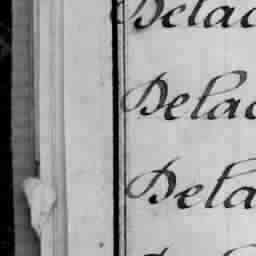 Delac
Delac
Dela